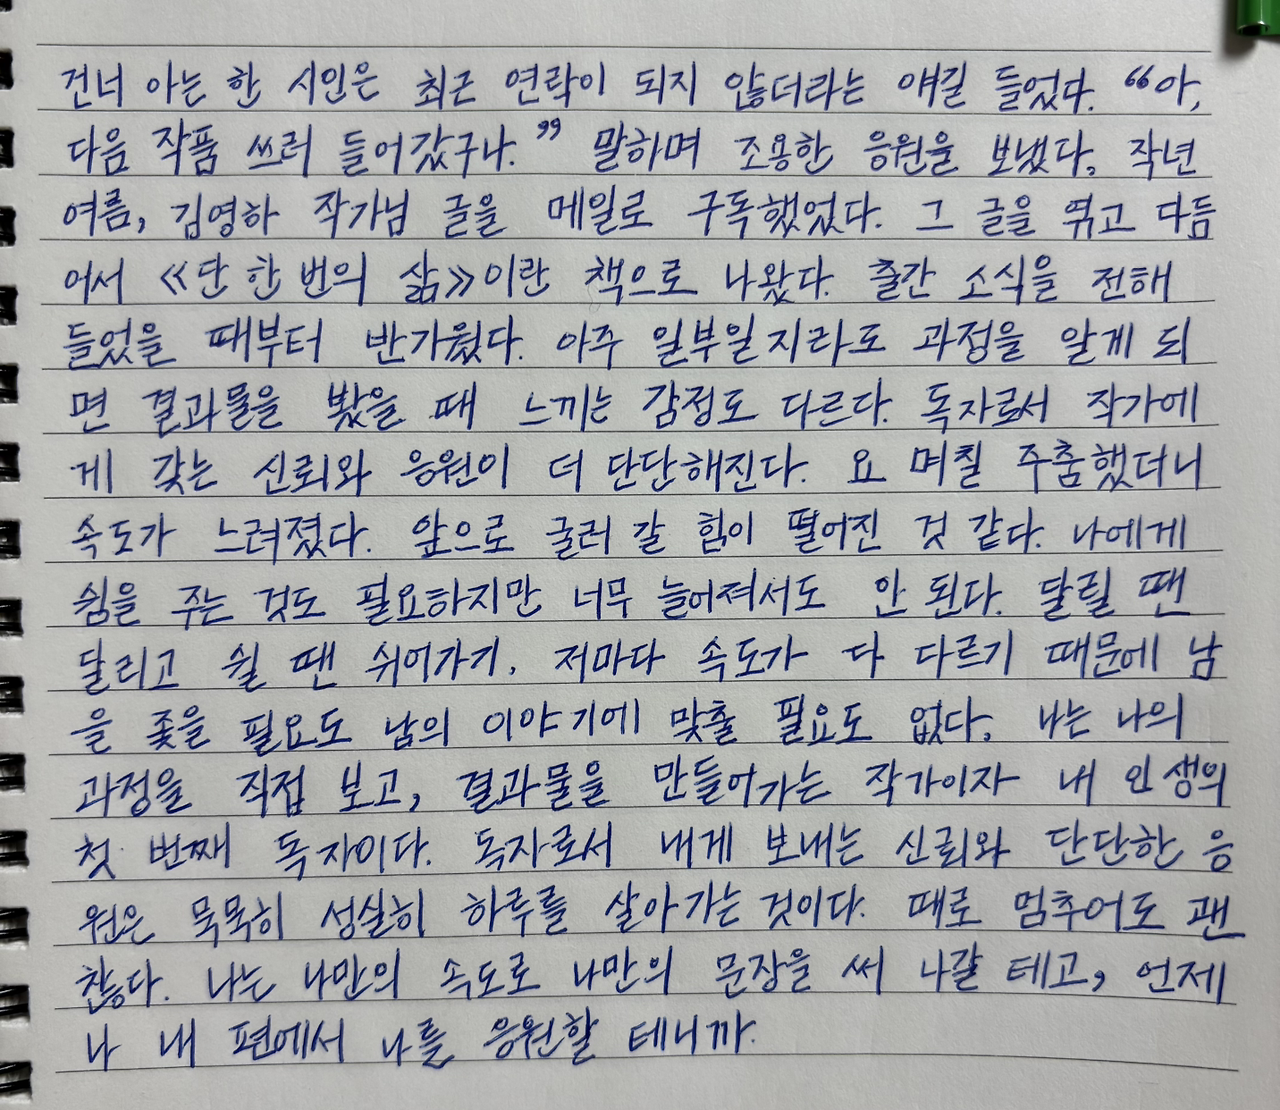 건너 아는 한 시인은 최근 연락이 되지 않더라는 얘길 들었다. “아,
다음 작품 쓰러 들어갔구나.” 말하며 조용한 응원을 보냈다, 작년
여름, 김영하 작가님 글을 메일로 구독했었다. 그 글을 엮고 다듬
어서 《단 한 번의 삶》이란 책으로 나왔다. 출간 소식을 전해
들었을 때부터 반가웠다. 아주 일부일지라도 과정을 알게 되
면 결과물을 봤을 때 느끼는 감정도 다르다. 독자로서 작가에
게 갖는 신뢰와 응원이 더 단단해진다. 요 며칠 주춤했더니
속도가 느려졌다. 앞으로 굴러 갈 힘이 떨어진 것 같다. 나에게
쉼을 주는 것도 필요하지만 너무 늘어져서도 안 된다. 달릴 땐
달리고 쉴 땐 쉬어가기. 저마다 속도가 다 다르기 때문에 남
을 좇을 필요도 남의 이야기에 맞출 필요도 없다, 나는 나의
과정을 직접 보고, 결과물을 만들어가는 작가이자 내 인생의
첫 번째 독자이다. 독자로서 내게 보내는 신뢰와 단단한 응
원은 묵묵히 성실히 하루를 살아가는 것이다. 때로 멈추어도 괜
찮다. 나는 나만의 속도로 나만의 문장을 써 나갈 테고, 언제
나 내 편에서 나를 응원할 테니까.